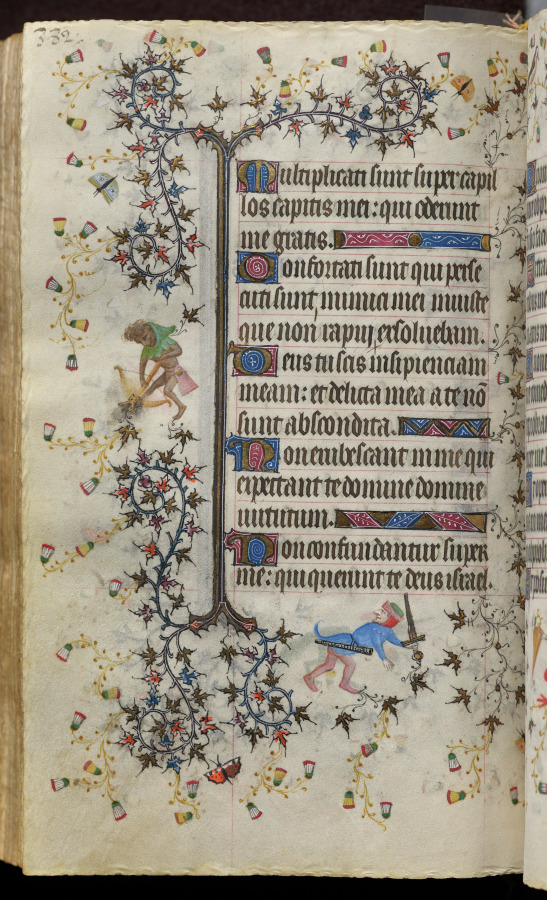 332
Multiplicati sunt super capil
los capitis mei: qui oderunt
me gratis.
Confortati sunt qui perse
cuti sunt inimici mei iniuste
que non rapui exsoluebam.
Deus tu scis insipienciam
meam: et delicta mea a te nō
sunt abscondita.
Non erubescant in me qui
expectant te domine domine
uirtutum.
Non confundantur super
me: qui querunt te deus israel.